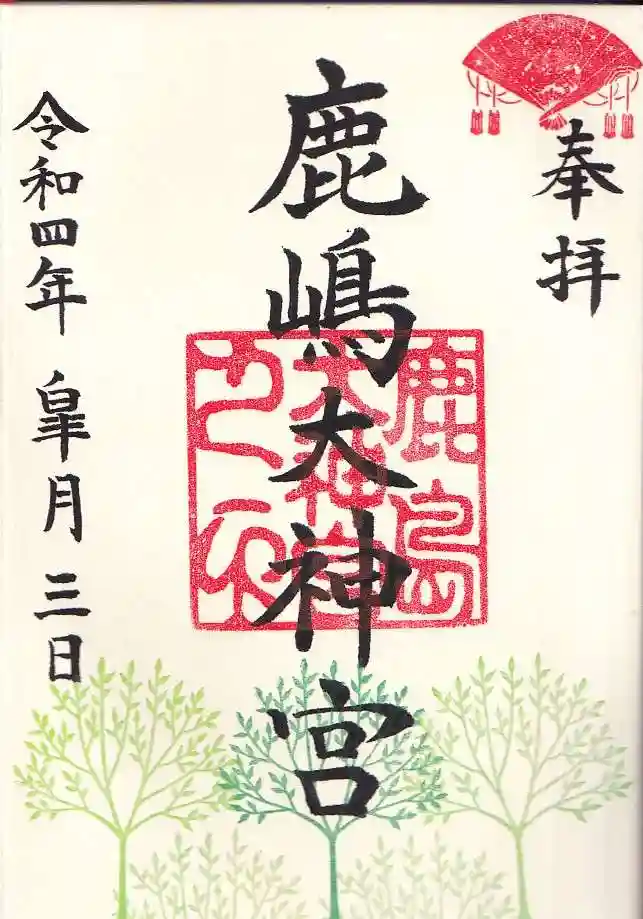 奉拝
鹿嶋大神宮
鹿島
大神宮
之印
令和四年 皐月 三日